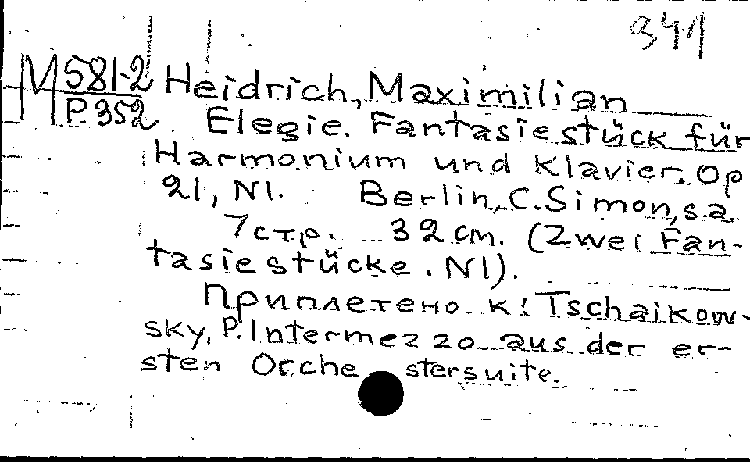 341
M 581-2 Heidrich, Maximilian
P 352 Elegie. Fantasiestück für
Harmonium und Klavier. Op
21, N1. Berlin, C. Simon, s.a
7 стр. 32 см. (Zwei Fan-
tasiestücke. N1).
Приплетено к: Tschaikow-
sky, P. Intermezzo aus der er-
sten Orchestersuite.